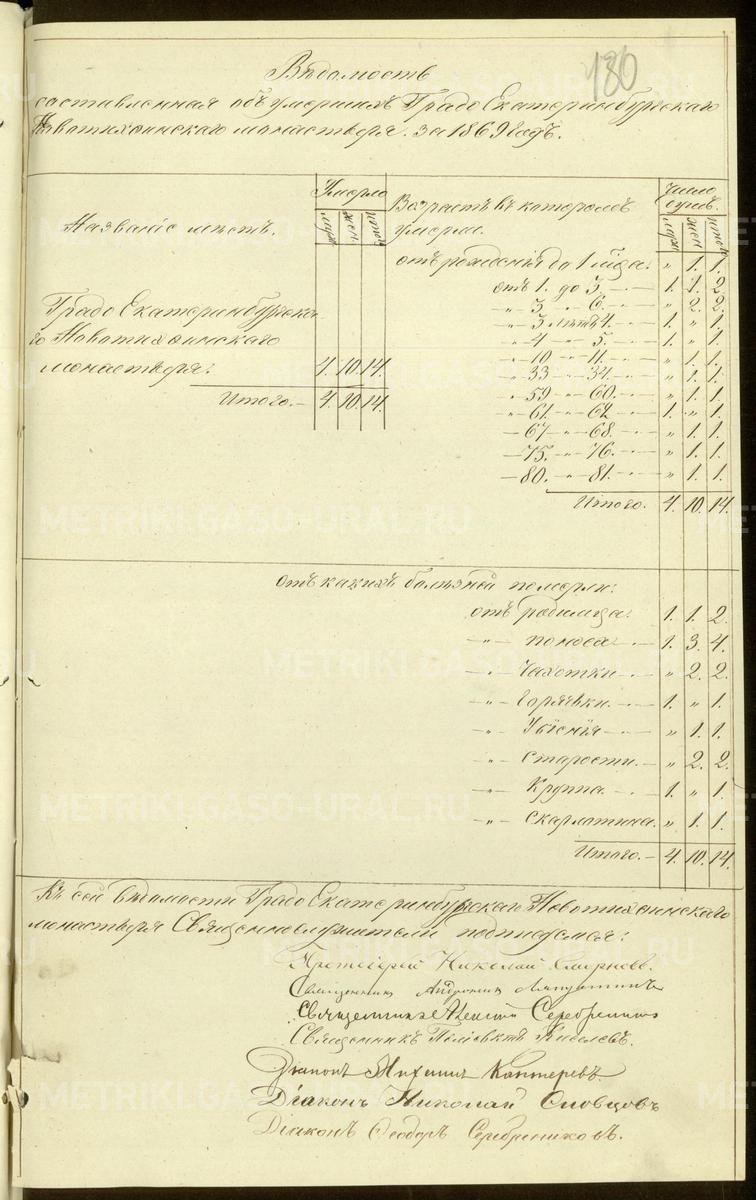 180
Вѣдомость
составленная объ умершихъ Градо Екатеринбургскаго
Новотихвинскаго монастыря. за 1869 годъ.
Названіе мѣстъ.
Умерло
муж.
жен.
обоего
Градо Екатеринбургска-
го Новотихвинскаго
монастыря: 4. 10. 14.
Итого. — 4. 10. 14.
Возрастъ въ которомъ
умерли.
Число
муж.
жен.
обоего
отъ рожденія до 1 м-ца. " 1. 1.
отъ 1. до 3. 1. 1. 2.
" 3 " 6. " 2. 2.
" 3 лѣтъ 4. 1. " 1.
" 4 " 5. 1. " 1.
" 10 " 11. " 1. 1.
" 33 " 34. " 1. 1.
" 59 " 60. " 1. 1.
" 61. " 62. 1. " 1.
— 67 " 68. " 1. 1.
— 75. " 76. " 1. 1.
— 80. " 81. " 1. 1.
Итого. 4. 10. 14.
отъ какихъ болѣзней померли:
отъ родимца. 1. 1. 2.
" поноса 1. 3. 4.
" Чахотки " 2. 2.
" Горячки. 1. " 1.
" " 1. 1.
" Старости. " 2. 2.
" Круппа 1. " 1.
" Скарлатина. " 1. 1.
Итого. — 4. 10. 14.
Къ сей вѣдомости Градо Екатеринбургскаго Новотихвинскаго
монастыря Священнослужители подписуемся:
Протоіерей Николай Смирновъ.
Священникъ Андроникъ
Священникъ Алексій Серебренниковъ
Священникъ Поліевктъ
Діаконъ Михаилъ Кантеревъ.
Діаконъ Николай Словцовъ
Діаконъ Ѳеодоръ Серебрениковъ.
METRIKI.GASO-URAL.RU